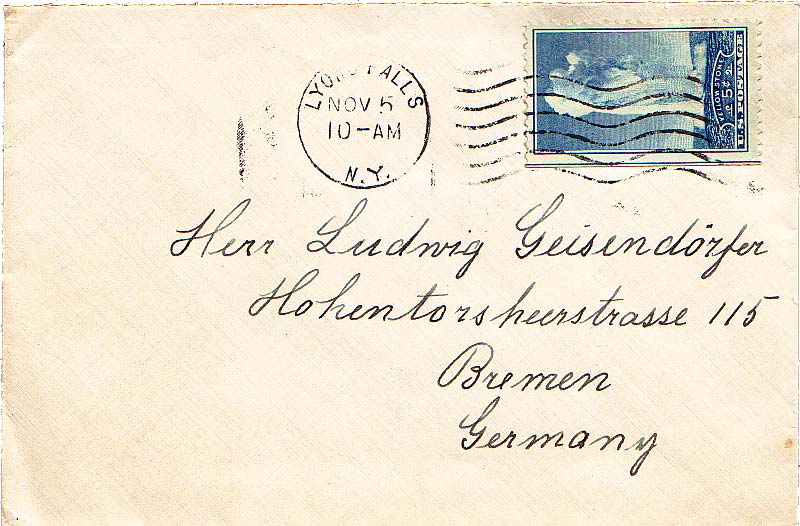 LYONS FALLS
NOV 5
10-AM
N.Y.
YELLOWSTONE
5¢
U.S. POSTAGE
Herr Ludwig Geisendörfer
Hohentorsheerstrasse 115
Bremen
Germany